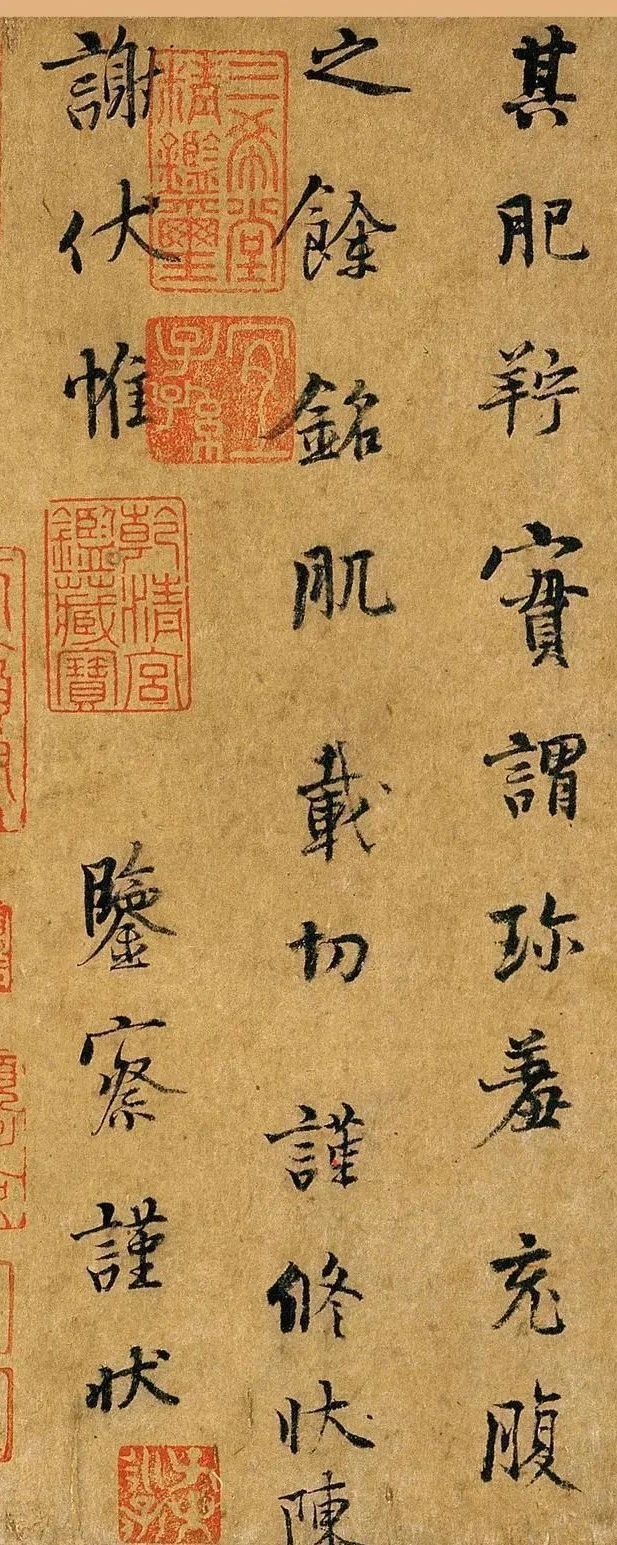 其肥羜實謂珎羞充腹
之餘銘肌載切謹修狀陳
謝伏惟
鑒察謹狀
三希堂精鑑璽
宜子孫
乾清宮鑑藏寶